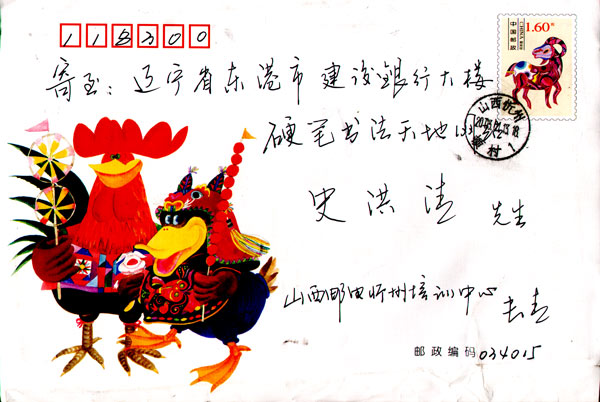 118300
1.60元
中国邮政
CHINA
寄至：辽宁省东港市建设银行大楼
硬笔书法天地
山西忻州
史洪清 先生
山西邮电忻州培训中心
邮政编码 034015